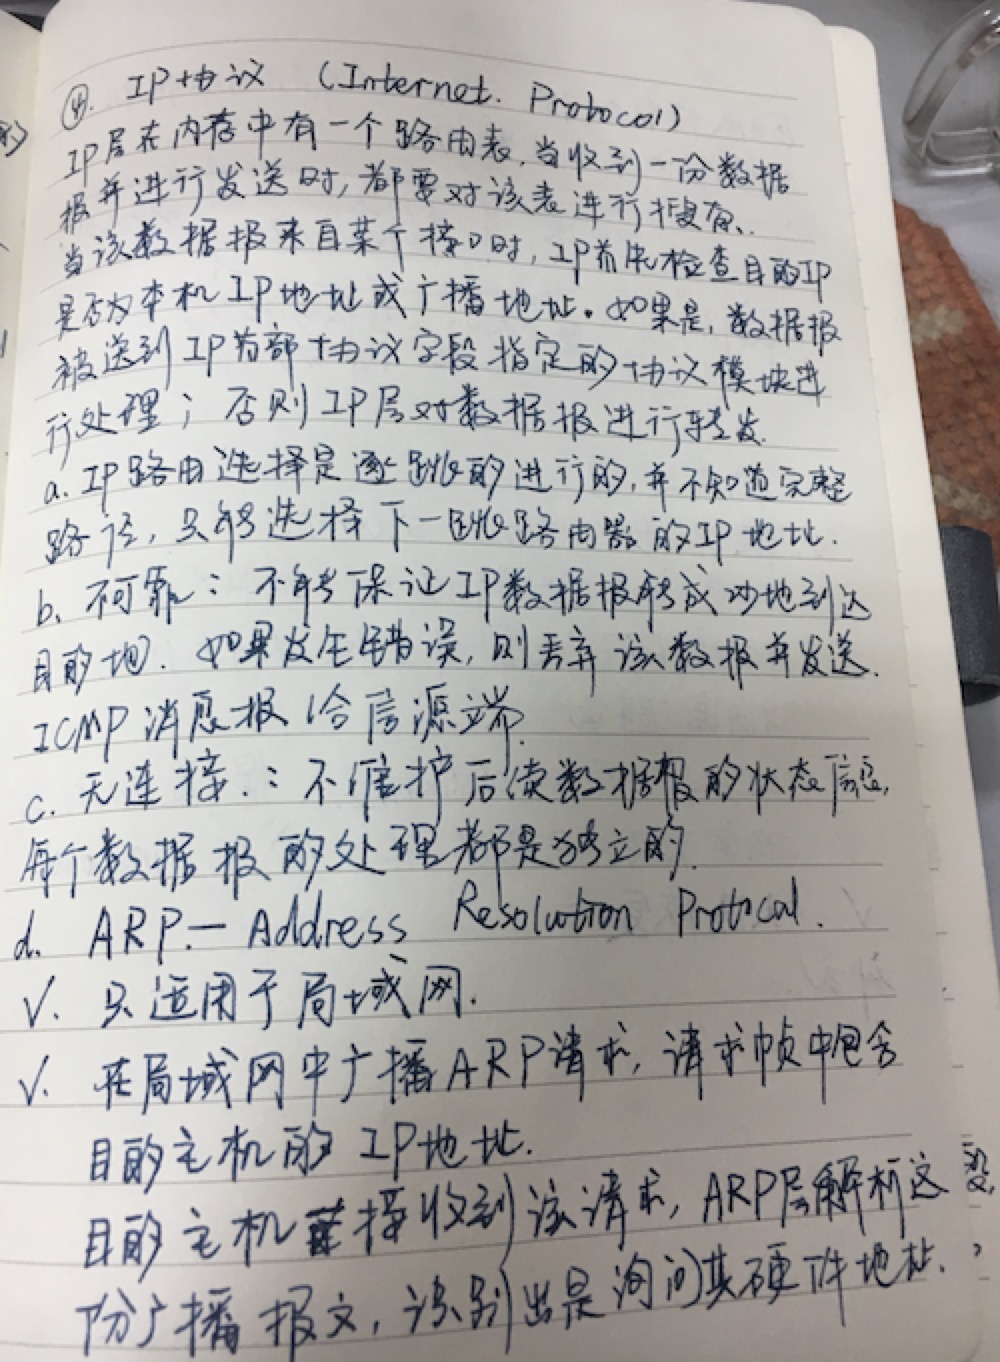 ④. IP协议 (Internet. Protocol)
IP层在内存中有一个路由表,当收到一份数据
报并进行发送时,都要对该表进行搜索.
当该数据报来自某个接口时,IP首先检查目的IP
是否为本机IP地址或广播地址。如果是,数据报
被送到IP首部协议字段指定的协议模块进
行处理;否则IP层对数据报进行转发.
a. IP路由选择是逐跳的进行的,并不知道完整
路径,只能选择下一跳路由器的IP地址.
b. 不可靠:不能保证IP数据报能成功地到达
目的地.如果发生错误,则丢弃该数报并发送.
ICMP消息报给信源端.
c. 无连接.:不维护后续数据报的状态信息,
每个数据报的处理都是独立的.
d. ARP.— Address Resolution Protocal.
√. 只适用于局域网.
√. 在局域网中广播ARP请求,请求帧中包含
目的主机的IP地址.
目的主机接收到该请求,ARP层解析这
份广播报文,识别出是询问其硬件地址.,